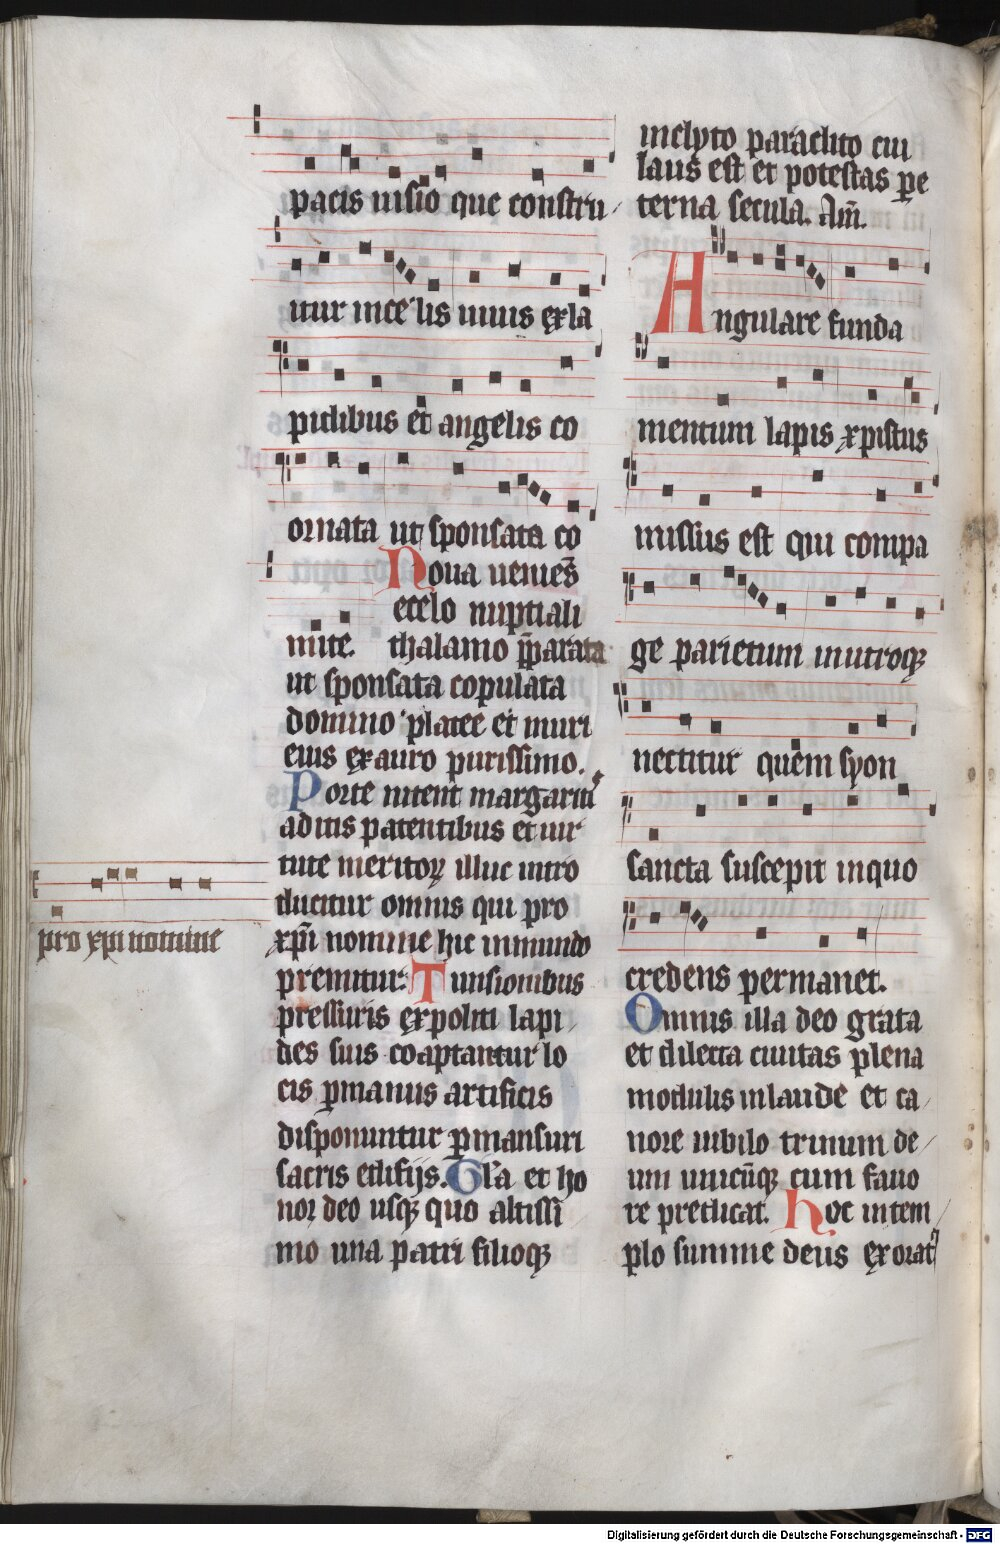 pacis uisio que constru
itur in ce lis uiuis ex la
pidibus et angelis co
ornata ut sponsata co
mite.
Noua uenies̄
e celo nuptiali
thalamo p̄parata
ut sponsata copulata
domino platee et muri
eius ex auro purissimo.
Porte nitent margarit̄
aditis patentibus et uir
tute meritoꝝ illuc intro
ducitur omnis qui pro
xp̄i nomine hic in mundo
premitur. Tunsionibus
pressuris expoliti lapi
des suis coaptantur lo
cis ꝑ manus artificis
disponuntur ꝑmansuri
sacris edifijs. Gl̄a et ho
nor deo usqꝫ quo altissi
mo una patri filioqꝫ
pro xpi nomine
inclyto paraclito cui
laus est et potestas ꝑ e
terna secula. Am̄.
Angulare funda
mentum lapis xpistus
missus est qui compa
ge parietum in utroqꝫ
nectitur quem syon
sancta suscepit in quo
credens permanet.
Omnis illa deo grata
et dilecta ciuitas plena
modulis in laude et ca
nore iubilo trinum de
um unicūqꝫ cum fauo
re predicat. Hoc in tem
plo summe deus exorat᷒
Digitalisierung gefördert durch die Deutsche Forschungsgemeinschaft - DFG